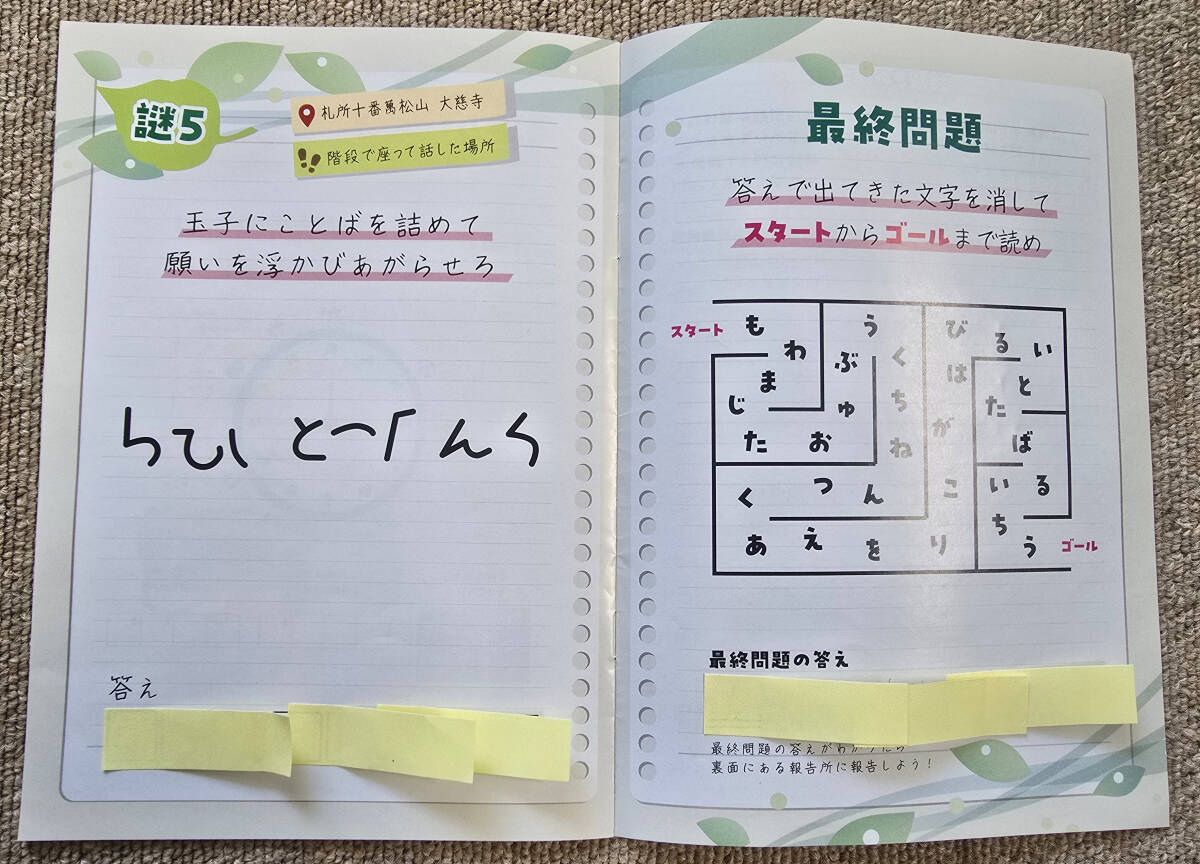 謎5
札所十番萬松山 大慈寺
階段で座って話した場所
玉子にことばを詰めて
願いを浮かびあがらせろ
答え
最終問題
答えで出てきた文字を消して
スタートからゴールまで読め
スタート も う び る い
わ ぶ く は と
ま ち た
じ ゅ が ば
た お ね
く つ ん こ い る
あ え を り ち う ゴール
最終問題の答え
最終問題の答えがわかったら
裏面にある報告所に報告しよう！